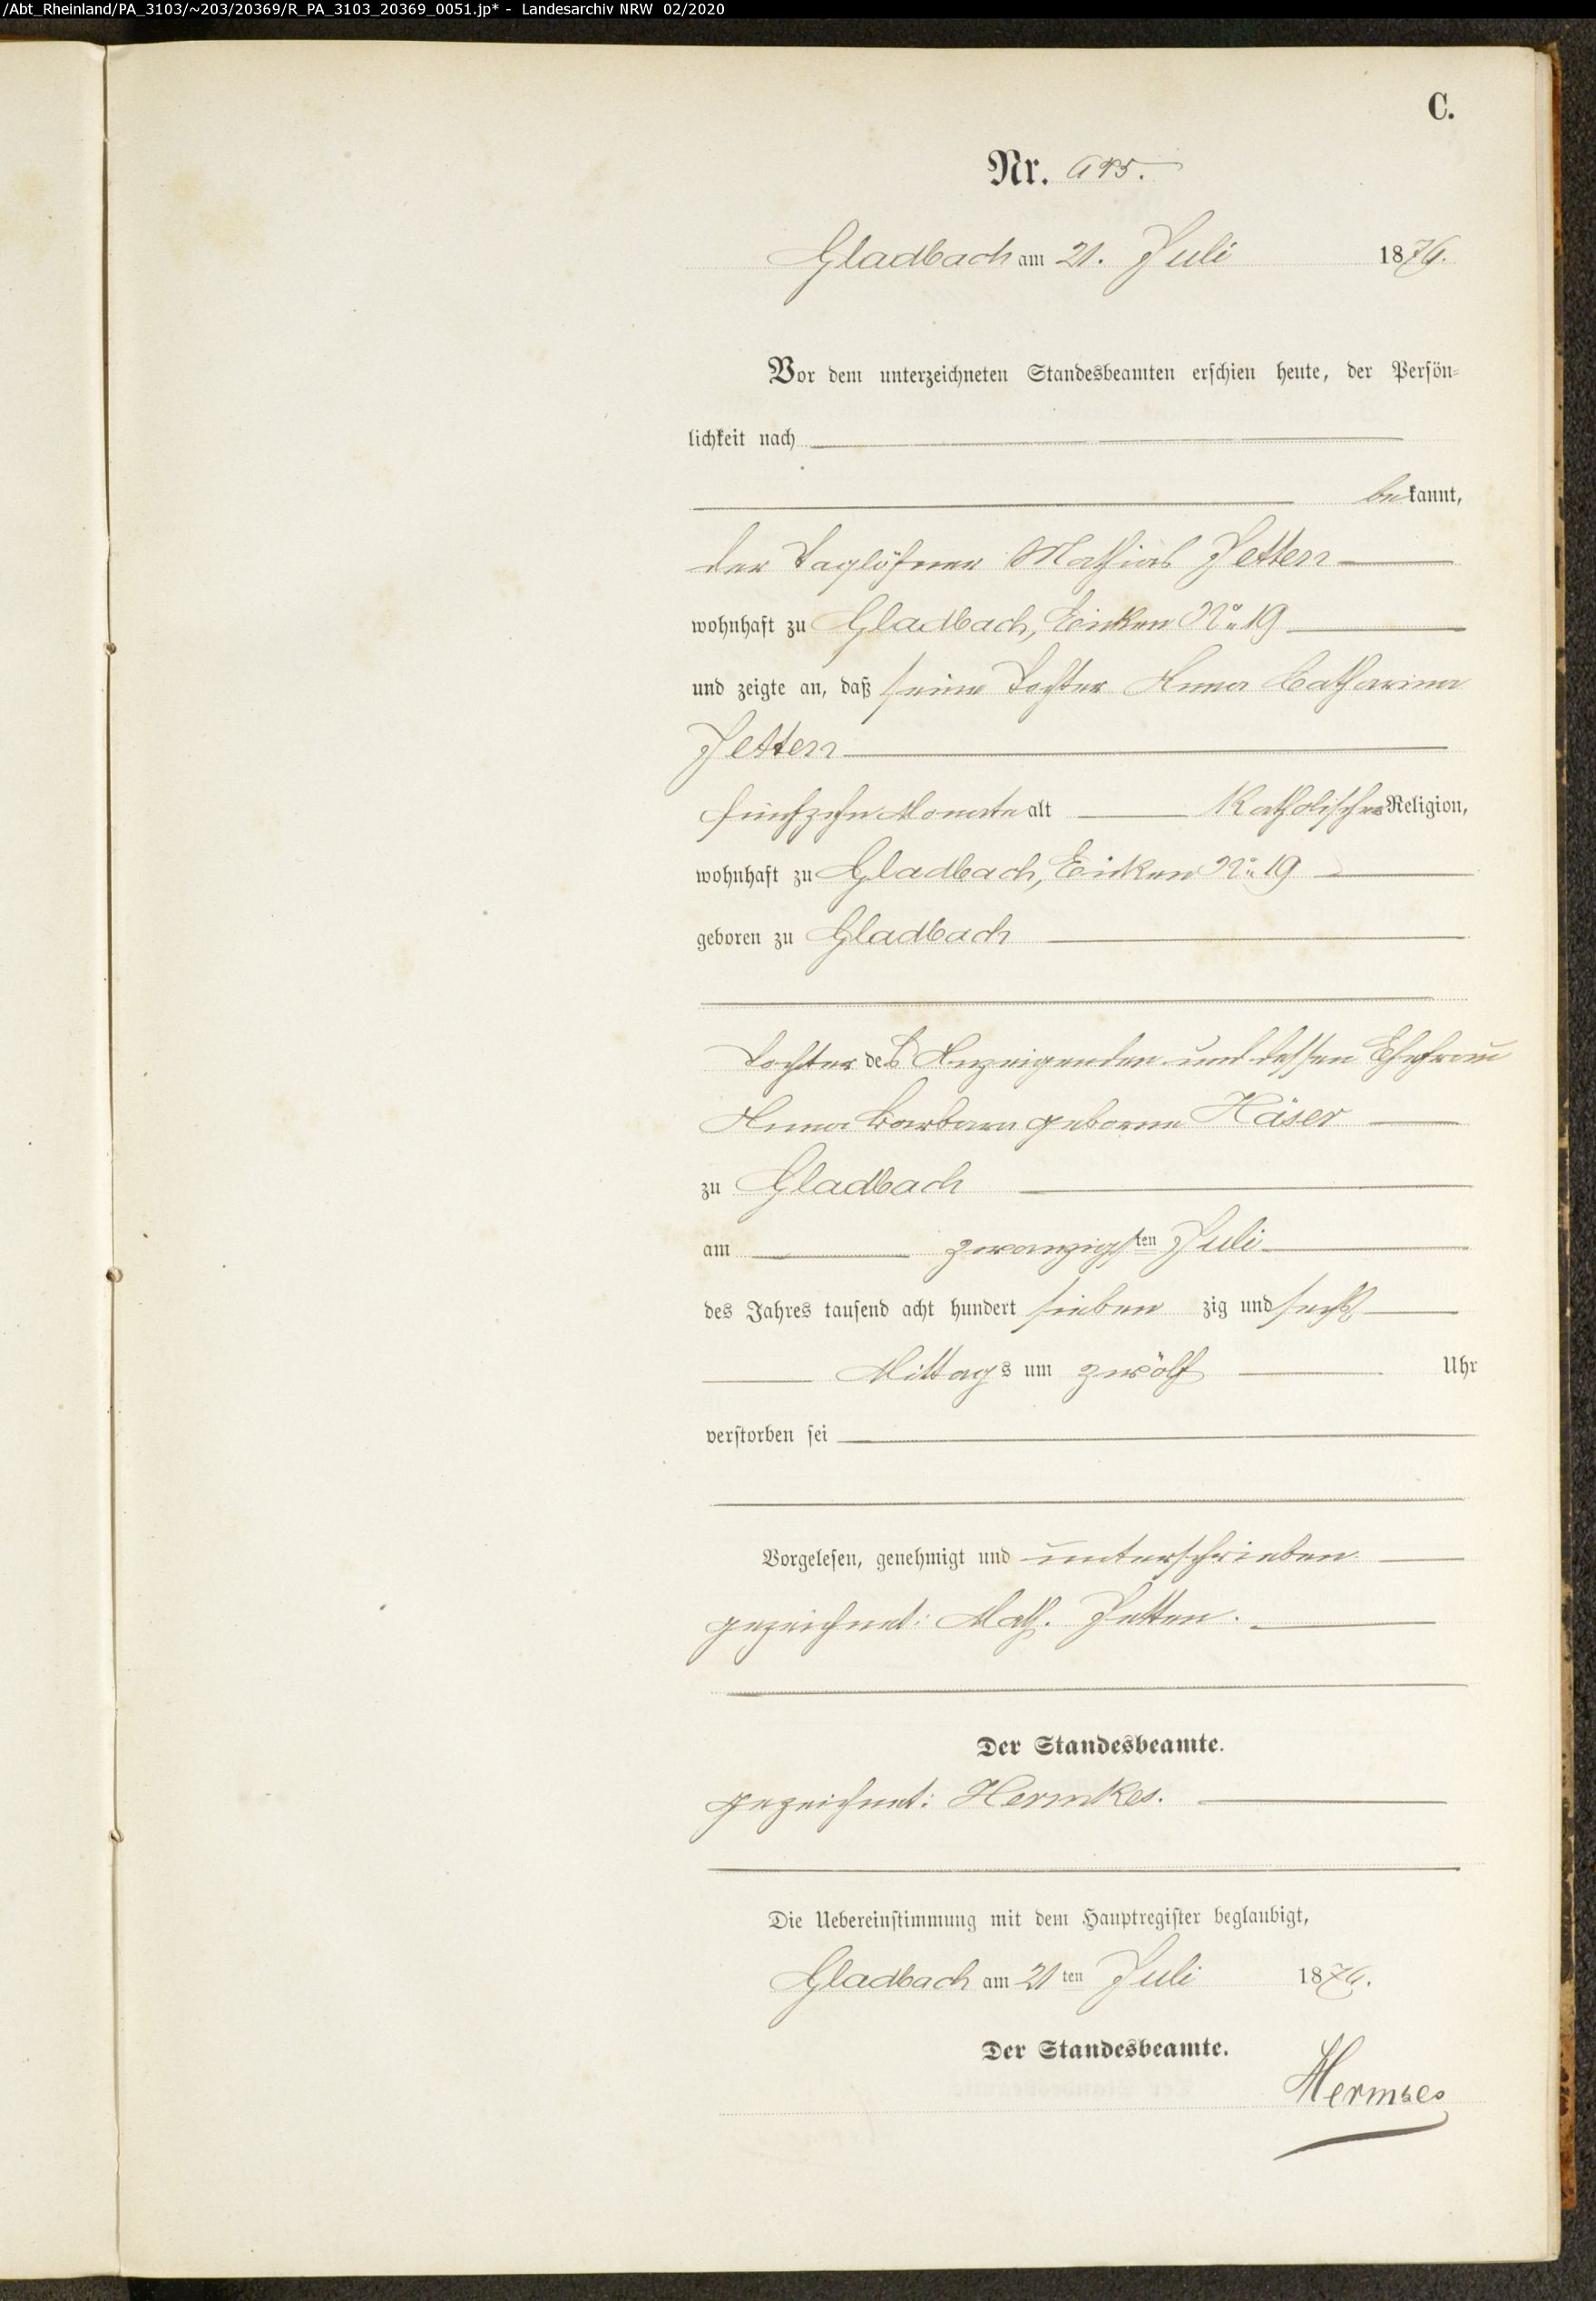 /Abt_Rheinland/PA_3103/~203/20369/R_PA_3103_20369_0051.jp* - Landesarchiv NRW 02/2020
C.
Nr.
Gladbach am 21. Juli 1876.
Vor dem unterzeichneten Standesbeamten erschien heute, der Persön-
lichkeit nach
bekannt,
der Taglöhner Mathias Jetten
wohnhaft zu Gladbach, Eicken No 19
und zeigte an, daß seine Tochter Anna Catharina
Jetten
fünfzehn Monate alt katholischer Religion,
wohnhaft zu Gladbach, Eicken No 19
geboren zu Gladbach
Tochter des Anzeigenden und dessen Ehefrau
Anna Barbara geborne Häser
zu Gladbach
am zwanzigsten Juli
des Jahres tausend acht hundert siebenzig und sechs
Mittags um zwölf Uhr
verstorben sei
Vorgelesen, genehmigt und unterschrieben
gezeichnet: Math. Jetten.
Der Standesbeamte.
gezeichnet: Hermkes.
Die Uebereinstimmung mit dem Hauptregister beglaubigt,
Gladbach am 21ten Juli 1876.
Der Standesbeamte.
Hermkes